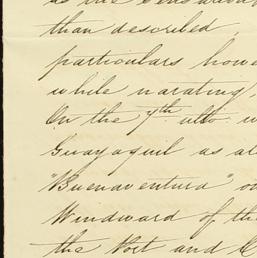 as the
than described,
particulars howe
while narating,
On the 7th ulto w
Guayaquil as al
"Buenaventura" on
Windward of the
the Port and